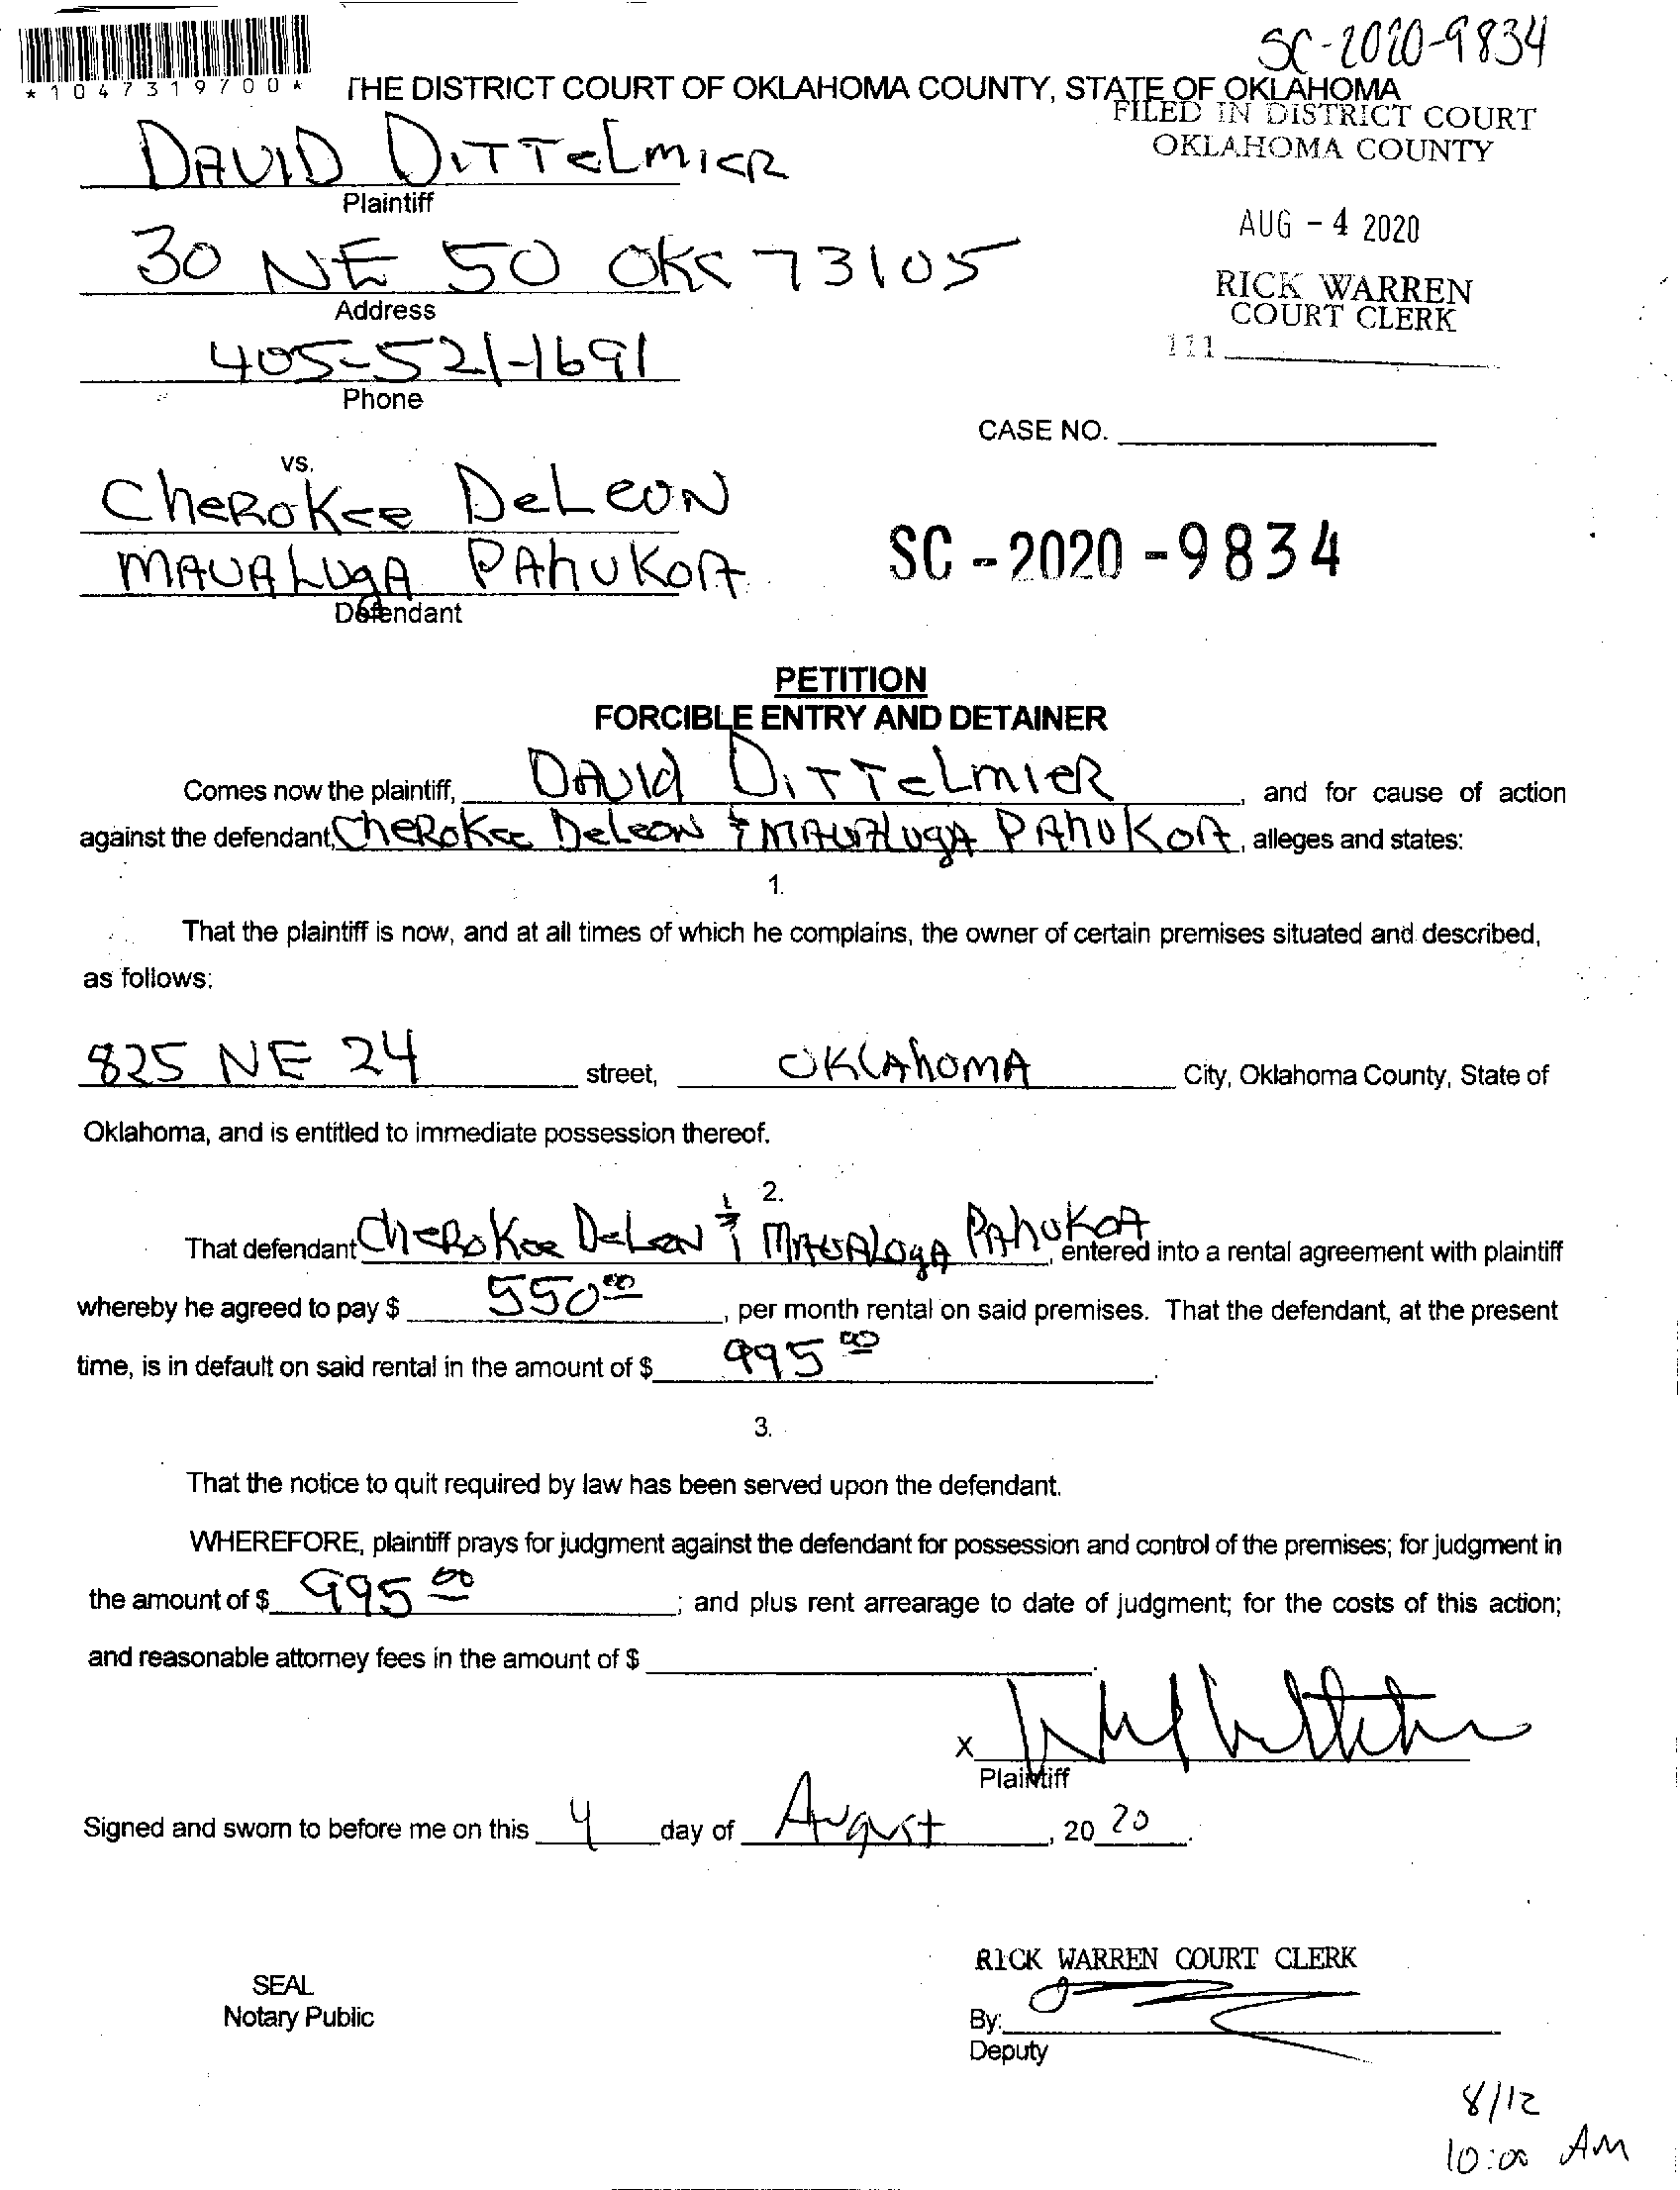 SC-2020-9834
*1047319700*
THE DISTRICT COURT OF OKLAHOMA COUNTY, STATE OF OKLAHOMA
FILED IN DISTRICT COURT
OKLAHOMA COUNTY
DAVID DITTELMIER
Plaintiff
AUG - 4 2020
30 NE 50 OKC 73105
Address
RICK WARREN
COURT CLERK
111
405-521-1691
Phone
CASE NO.
vs.
CHEROKEE DELEON
MAUALUGA PAHUKOA
Defendant
SC - 2020 - 9834
PETITION
FORCIBLE ENTRY AND DETAINER
Comes now the plaintiff, DAVID DITTELMIER, and for cause of action
against the defendant, CHEROKEE DELEON & MAUALUGA PAHUKOA, alleges and states:
1.
That the plaintiff is now, and at all times of which he complains, the owner of certain premises situated and described,
as follows:
825 NE 24 street, OKLAHOMA City, Oklahoma County, State of
Oklahoma, and is entitled to immediate possession thereof.
2.
That defendant CHEROKEE DELEON & MAUALUGA PAHUKOA, entered into a rental agreement with plaintiff
whereby he agreed to pay $ 550.00, per month rental on said premises. That the defendant, at the present
time, is in default on said rental in the amount of $ 995.00.
3.
That the notice to quit required by law has been served upon the defendant.
WHEREFORE, plaintiff prays for judgment against the defendant for possession and control of the premises; for judgment in
the amount of $ 995.00; and plus rent arrearage to date of judgment; for the costs of this action;
and reasonable attorney fees in the amount of $
X
Plaintiff
Signed and sworn to before me on this 4 day of August, 20 20.
RICK WARREN COURT CLERK
SEAL
Notary Public
By:
Deputy
8/12
10:00 AM